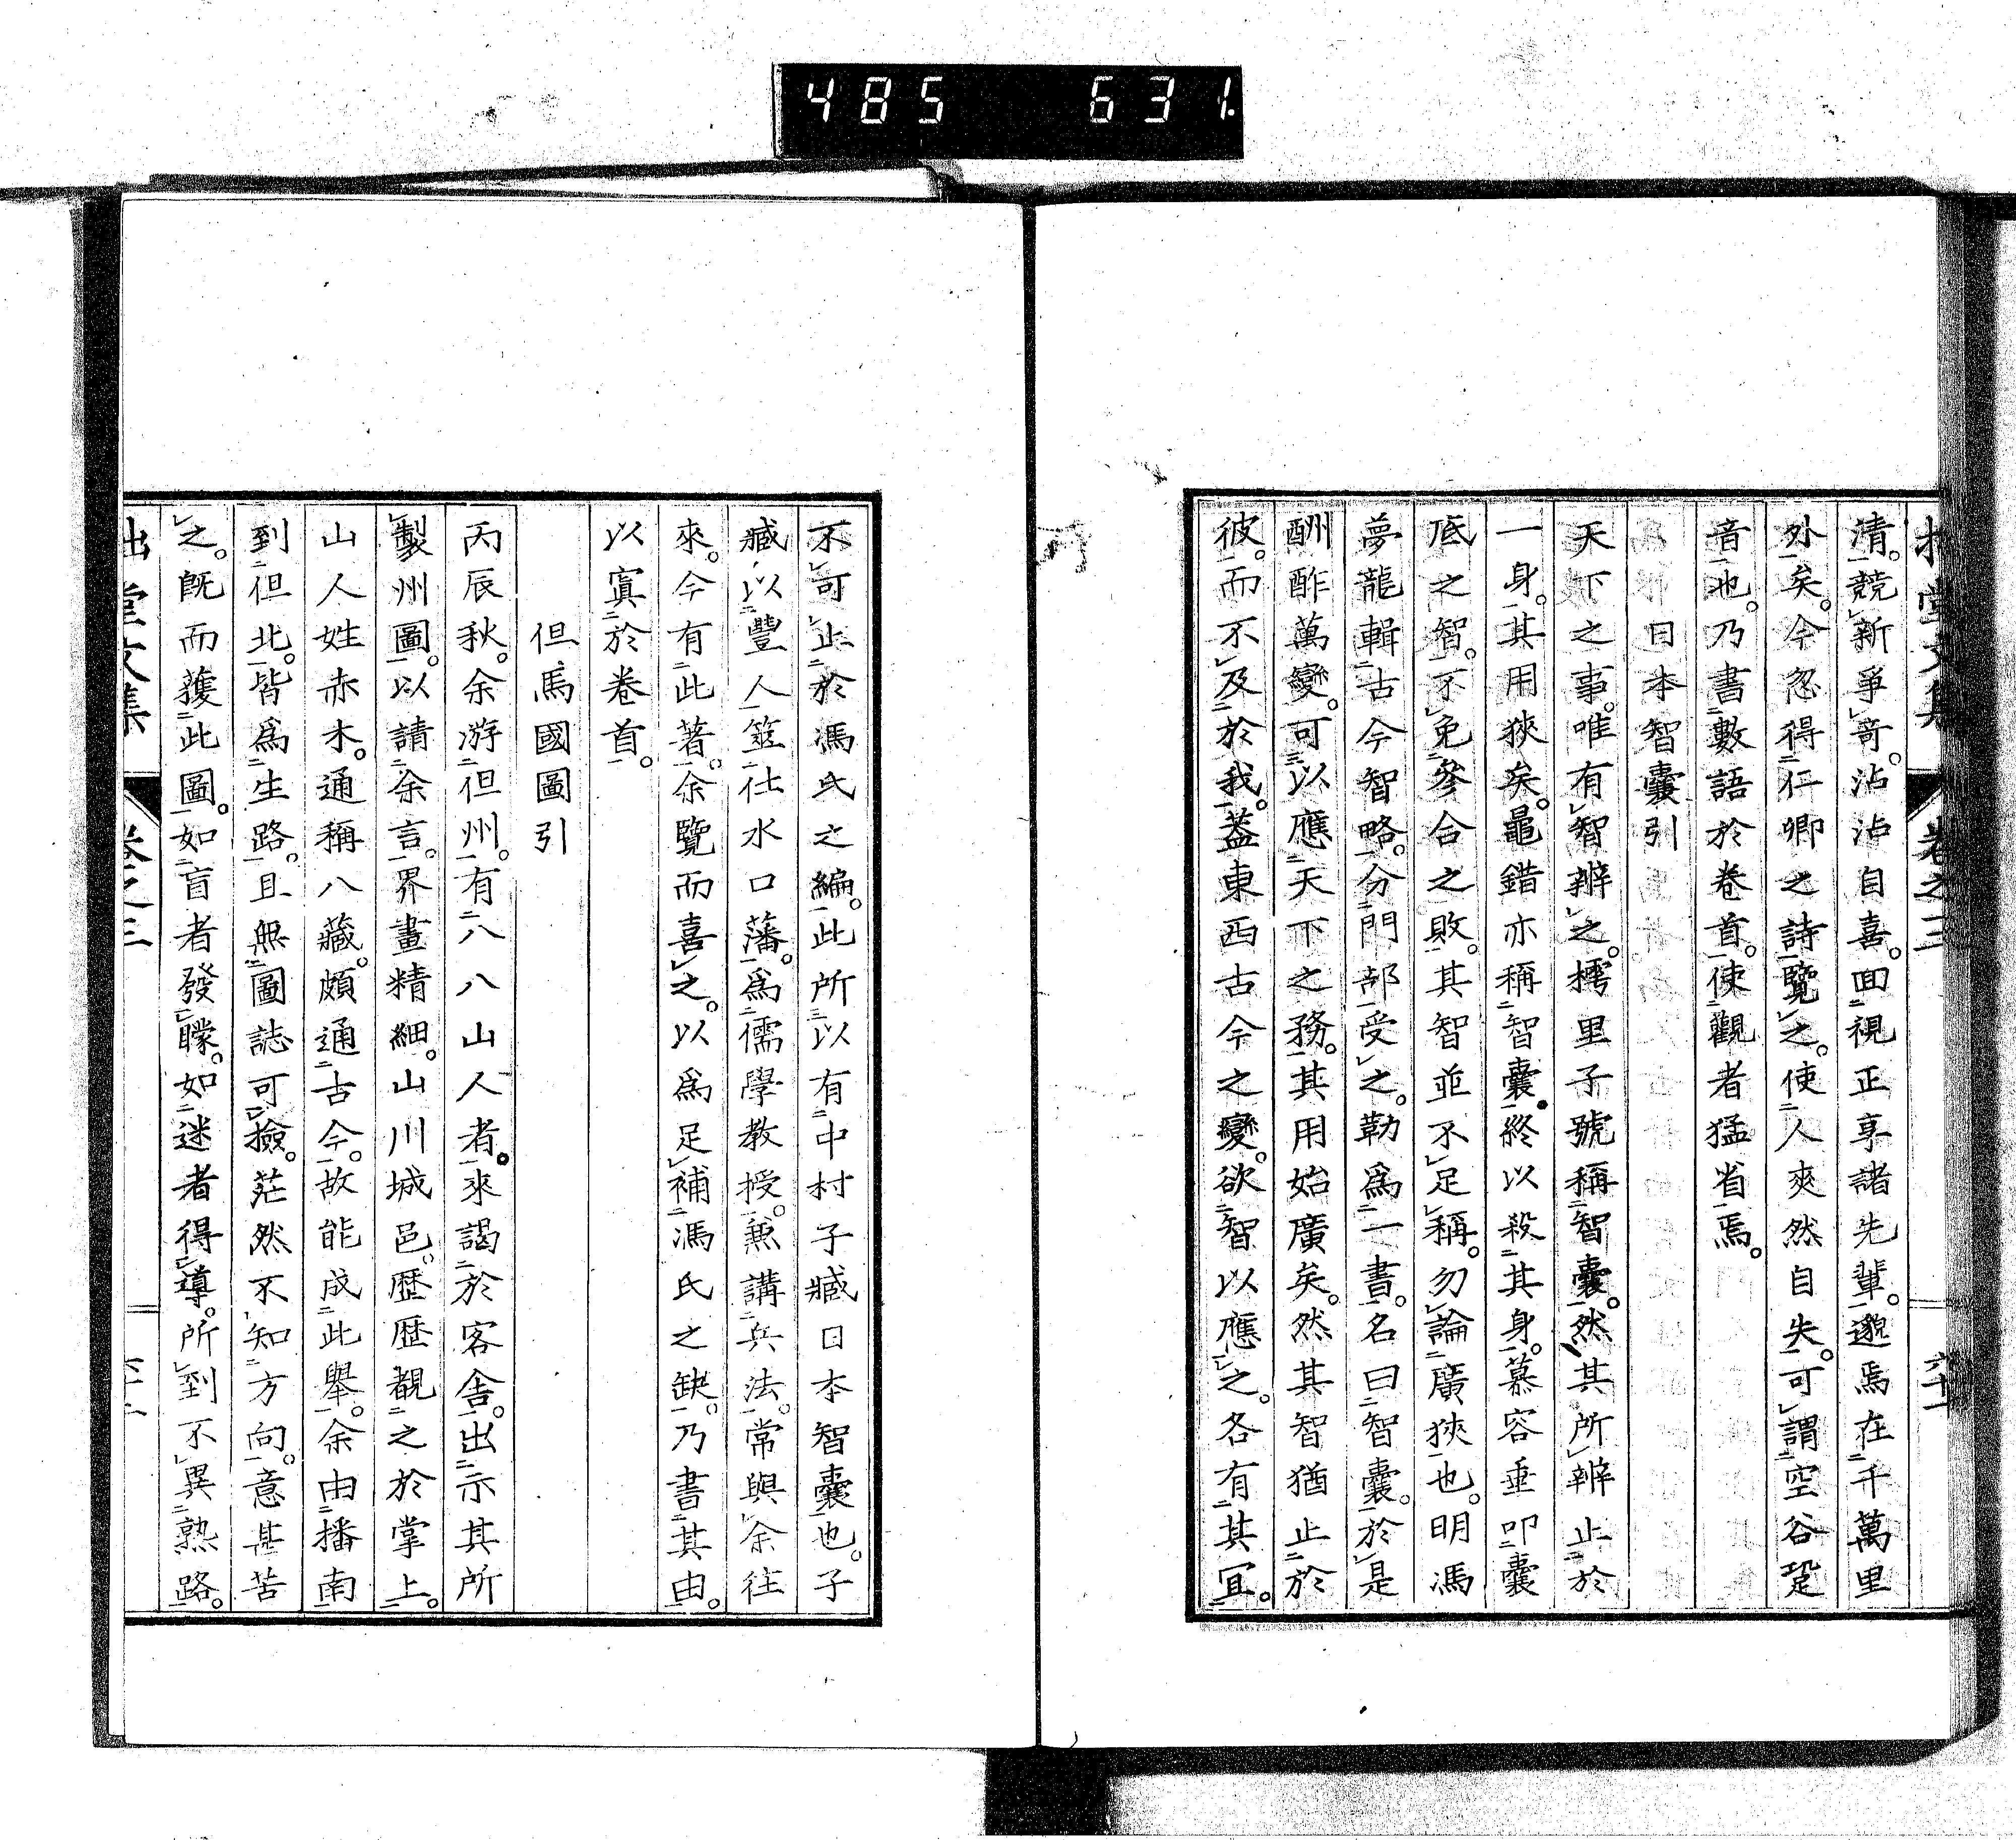 485 631.
清。競新爭奇。沾沾自喜。回視正享諸先輩。邈焉在千萬里
外矣。今忽得仁卿之詩覽之。使人爽然自失。可謂空谷跫
音也。乃書數語於卷首。使觀者猛省焉。
日本智囊引
天下之事。唯有智辨之。樗里子號稱智囊。然其所辨止於
一身。其用狹矣。鼂錯亦稱智囊。終以殺其身。慕容垂叩囊
底之智。不免參合之敗。其智並不足稱。勿論廣狹也。明馮
夢龍輯古今智略。分門部受之。勒爲一書。名曰智囊。於是
酬酢萬變。可以應天下之務。其用始廣矣。然其智猶止於
彼。而不及於我。蓋東西古今之變。欲智以應之。各有其宜。
不可止於馮氏之編。此所以有中村子臧日本智囊也。子
臧以豐人筮仕水口藩。爲儒學教授。兼講兵法。常與余往
來。今有此著。余覽而喜之。以爲足補馮氏之缺。乃書其由。
以寘於卷首。
但馬國圖引
丙辰秋。余游但州。有八八山人者。來謁於客舍。出示其所
製州圖。以請余言。界畫精細。山川城邑。歷歷覩之於掌上。
山人姓赤木。通稱八藏。頗通古今。故能成此舉。余由播南
到但北。皆爲生路。且無圖誌可撿。茫然不知方向。意甚苦
之。旣而獲此圖。如盲者發矇。如迷者得導。所到不異熟路。
拙堂文集 卷之三